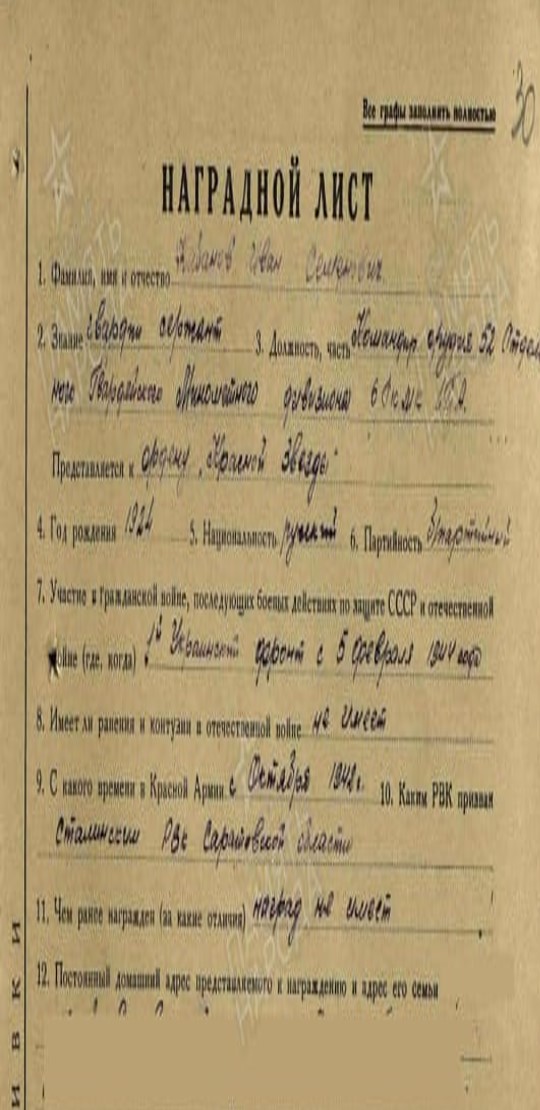 30
Все графы заполнить полностью
НАГРАДНОЙ ЛИСТ
1. Фамилия, имя и отчество Иван Семенович
2. Звание гвардии сержант 3. Должность, часть Командир орудия 52
ного Гвардейского Минометного дивизиона
Представляется к ордену "Красной Звезды"
4. Год рождения 1924 5. Национальность русский 6. Партийность Б/партийный
7. Участие в гражданской войне, последующих боевых действиях по защите СССР и отечественной
войне (где, когда) 1й Украинский фронт с 5 февраля 1944 года
8. Имеет ли ранения и контузии в отечественной войне не имеет
9. С какого времени в Красной Армии с Октября 1942 г. 10. Каким РВК призван
Сталинским РВК Саратовской области
11. Чем ранее награжден (за какие отличия) наград не имеет
12. Постоянный домашний адрес представляемого к награждению и адрес его семьи
ИВКИ